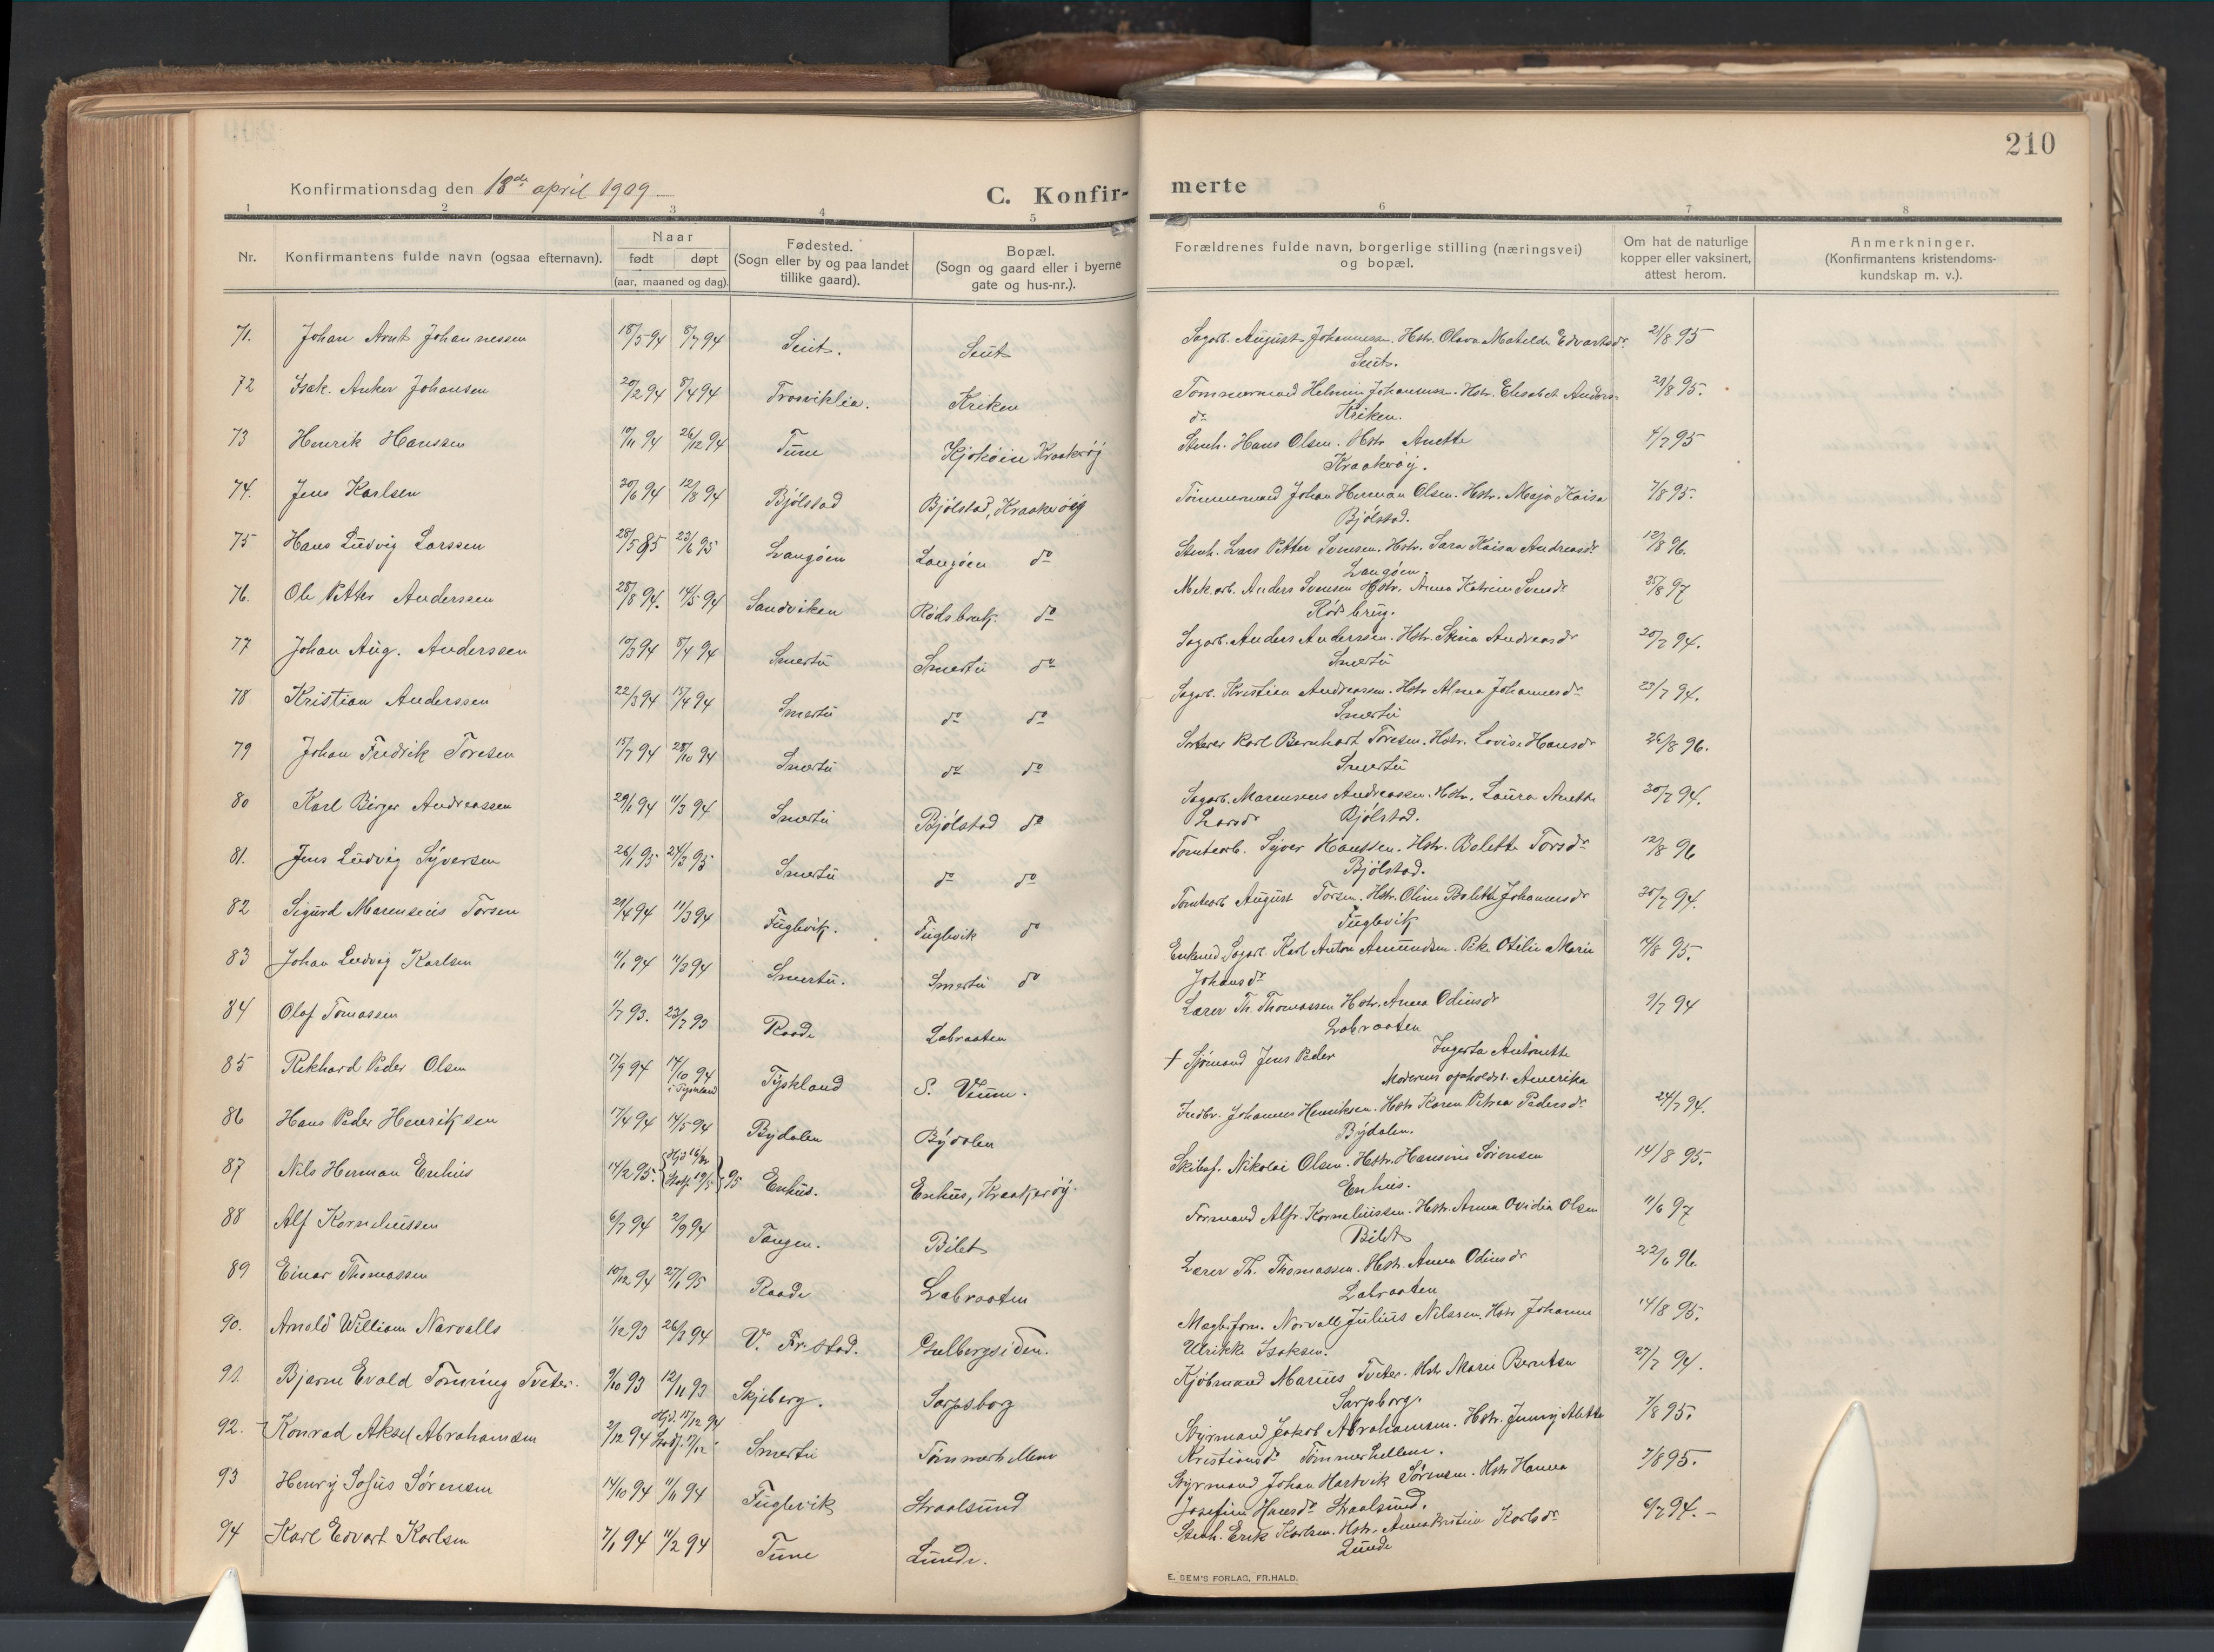 210
Konfirmationsdag den 18de april 1909
C. Konfir-
merte
1 2 3 4 5 6 7 8
Nr.
Konfirmantens fulde navn (ogsaa efternavn).
Naar
født døpt
(aar, maaned og dag).
Fødested.
(Sogn eller by og paa landet
tillike gaard).
Bopæl.
(Sogn og gaard eller i byerne
gate og hus-nr.).
Forældrenes fulde navn, borgerlige stilling (næringsvei)
og bopæl.
Om hat de naturlige
kopper eller vaksinert,
attest herom.
Anmerkninger.
(Konfirmantens kristendoms-
kundskap m. v.).
71. Johan Arnt Johannessen 18/5 94 8/7 94 Seut. Seut Sagarb. August Johannessen. Hstr. Olava Matilde Edvartsdr. 21/8 95
Seut.
72 Isak. Anker Johansen 20/2 94 8/4 94 Trosviklia. Kriken Tømmermand Helmin Johannessen. Hstr. Elisabet Anders- 21/8 95.
dr Kriken.
73 Henrik Hanssen 19/11 94 26/12 94 Tune Kjøkøen Kraakerøy Stenh. Hans Olsen. Hstr Anette 4/7 95
Kraakerøy.
74. Jens Karlsen 20/6 94 12/8 94 Bjølstad Bjølstad, Kraakerøy Tømmermand Johan Herman Olsen. Hstr. Maja Kaisa 7/8 95.
Bjølstad.
75 Hans Ludvig Larssen 28/5 95 23/6 95 Langøen Langøen do Stenh. Lars Petter Svensen. Hstr. Sara Kaisa Andreasdr 12/8 96.
Langøen.
76. Ole Petter Anderssen 28/8 94. 14/5 94 Sandviken Rødsbruk. do Mek. arb. Anders Svensen Hstr. Anna Katrine Svensdr 25/8 97
Rødsbrug.
77 Johan Aug. Anderssen 10/3 94 8/4 94 Smertu Smertu do Sagarb. Anders Anderssen. Hstr. Stina Andreasdr 20/7 94.
Smertu
78 Kristian Anderssen 22/3 94 15/4 94 Smertu do do Sagarb. Kristian Andreassen. Hstr Alma Johannesdr 23/7 94.
Smertu
79 Johan Fredrik Toresen 15/7 94 28/10 94 Smertu do do Sorterer Karl Bernhart Toresen. Hstr. Lovise Hansdr 26/8 96.
Smertu
80 Karl Birger Andreassen 29/1 94 11/3 94 Smertu Bjølstad do Sagarb. Marensius Andreassen. Hstr. Laura Anette 20/7 94.
Larsdr Bjølstad.
81. Jens Ludvig Syversen 26/1 95 24/3 95 Smertu do do Tomtearb. Syver Hanssen. Hstr. Bolette Torsdr 12/8 96
Bjølstad.
82 Sigurd Marensius Torsen 11/3 94 Fuglevik. Fuglevik do Tomtearb August Torsen. Hstr. Oline Bolette Johannesdr 20/7 94.
Fuglevik
83 Johan Ludvig Karlsen 11/1 94 11/3 94 Smertu. Smertu do Enkemd Sagarb. Karl Anton Amundsen. Pike Otilie Marie 14/8 95.
Johansdr
84 Olaf Tomassen 1/7 93. 23/7 93 Raade Labraaten Lærer Th. Thomassen Hstr. Anna Odinsdr 9/7 94
Labraaten
85 Rikhard Peder Olsen 17/9 94 14/10 94 Tyskland S. Veum. † Sjømand Jens Peder Ingerta Antonette
i Tyskland Moderens opholdst. Amerika
86 Hans Peder Henriksen 17/4 94 14/5 94 Bydalen Bydalen Johannes Henriksen. Hstr Karen Petrea Pedersdr 24/7 94.
Bydalen.
87 Nils Herman Enhus 14/2 95. {Hjd 16/2 Stadf. 19/5} 95 Enhus. Enhus, Kraakerøy. Skibsf. Nikolai Olsen. Hstr. Hansine Sørensen 14/8 95.
Enhus.
88 Alf Kornelussen 6/7 94 2/9 94 Tangen. Bilet Formand Alfr. Korneliussen. Hstr. Anna Ovidia Olsen 11/6 97
Bilet
89 Einar Thomassen 10/12 94 27/1 95 Raade Labraaten Lærer Th. Thomassen. Hstr. Anna Odinsdr 22/6 96.
Labraaten
90. Arnold William Narvalls 1/12 93 26/3 94 V. Fr.stad. Gulbergsiden. Norvall Julius Nilssen. Hstr Johanne 14/8 95.
Ulrikke Isaksen.
91. Bjarne Evald Tømring Tveter. 9/10 93 12/11 93 Skjeberg. Sarpsborg Kjøbmand Marius Tveter. Hstr Marie Berntsen 27/7 94.
Sarpsborg.
92. Konrad Aksel Abrahamsen 2/12 94 Hjd. 15/12 94 Stadf. 17/12 Smertu Tømmerhellene Styrmand Jakob Abrahamsen. Hstr. Jenny Alette 7/8 95.
Kristiansdr Tømmerhellene.
93 Henry Sofus Sørensen 14/10 94 11/11 94 Fuglevik Straalsund Styrmand Johan Hartvik Sørensen. Hstr Hanna 7/8 95.
Josefine Hansdr Straalsund.
94 Karl Edvart Karlsen 7/1 94 11/2 94 Tune Lunde. Stenh. Erik Karlsen. Hstr. Anna Kristine Karlsdr 6/7 94.
Lunde
E. SEM'S FORLAG, FR.HALD.